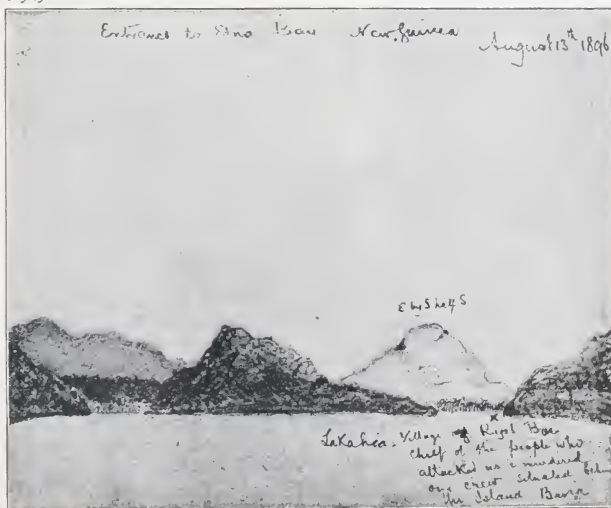 Entrance to Etna Bay New Guinea
August 13th 1896
E by S half S
x
Lakahia. Village of
Chief of the people who
attacked us & murdered
our crew situated
the Island